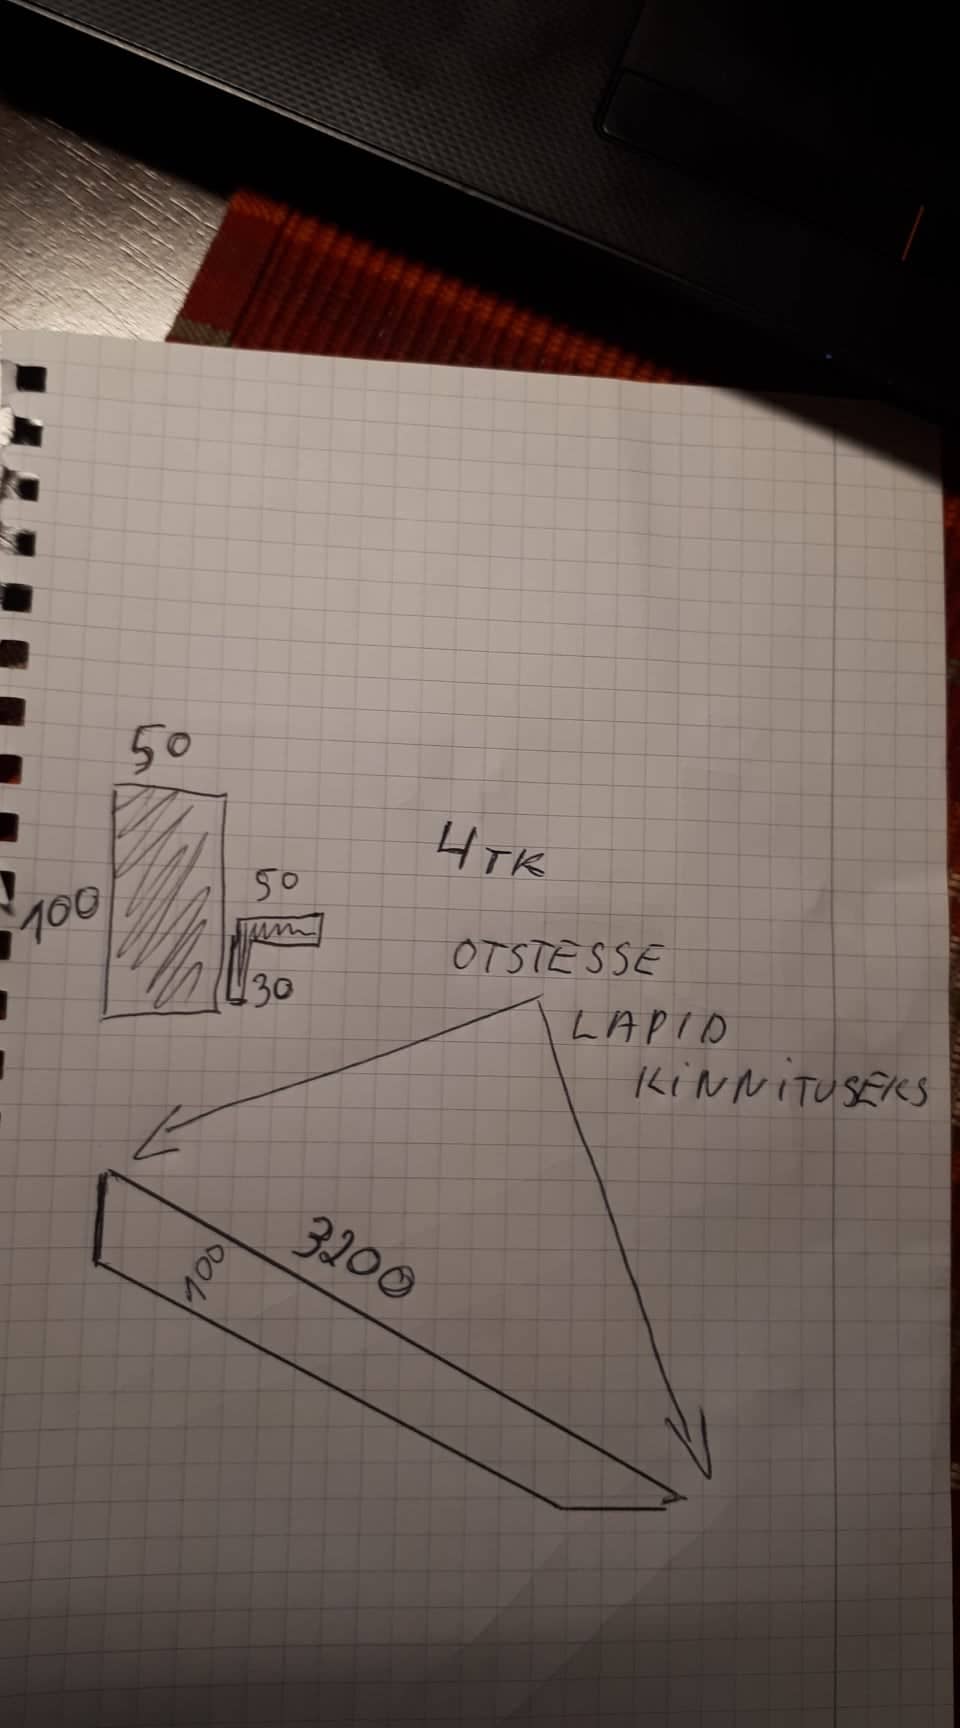 50
100
50
30
4 TK
OTSTESSE
LAPID
KINNITUSEKS
3200
100